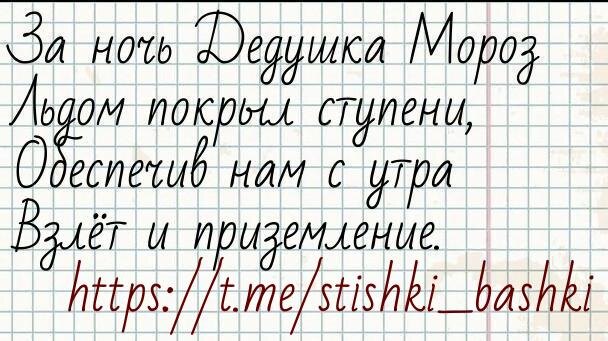 За ночь Дедушка Мороз
Льдом покрыл ступени,
Обеспечив нам с утра
Взлёт и приземление.
https://t.me/stishki_bashki